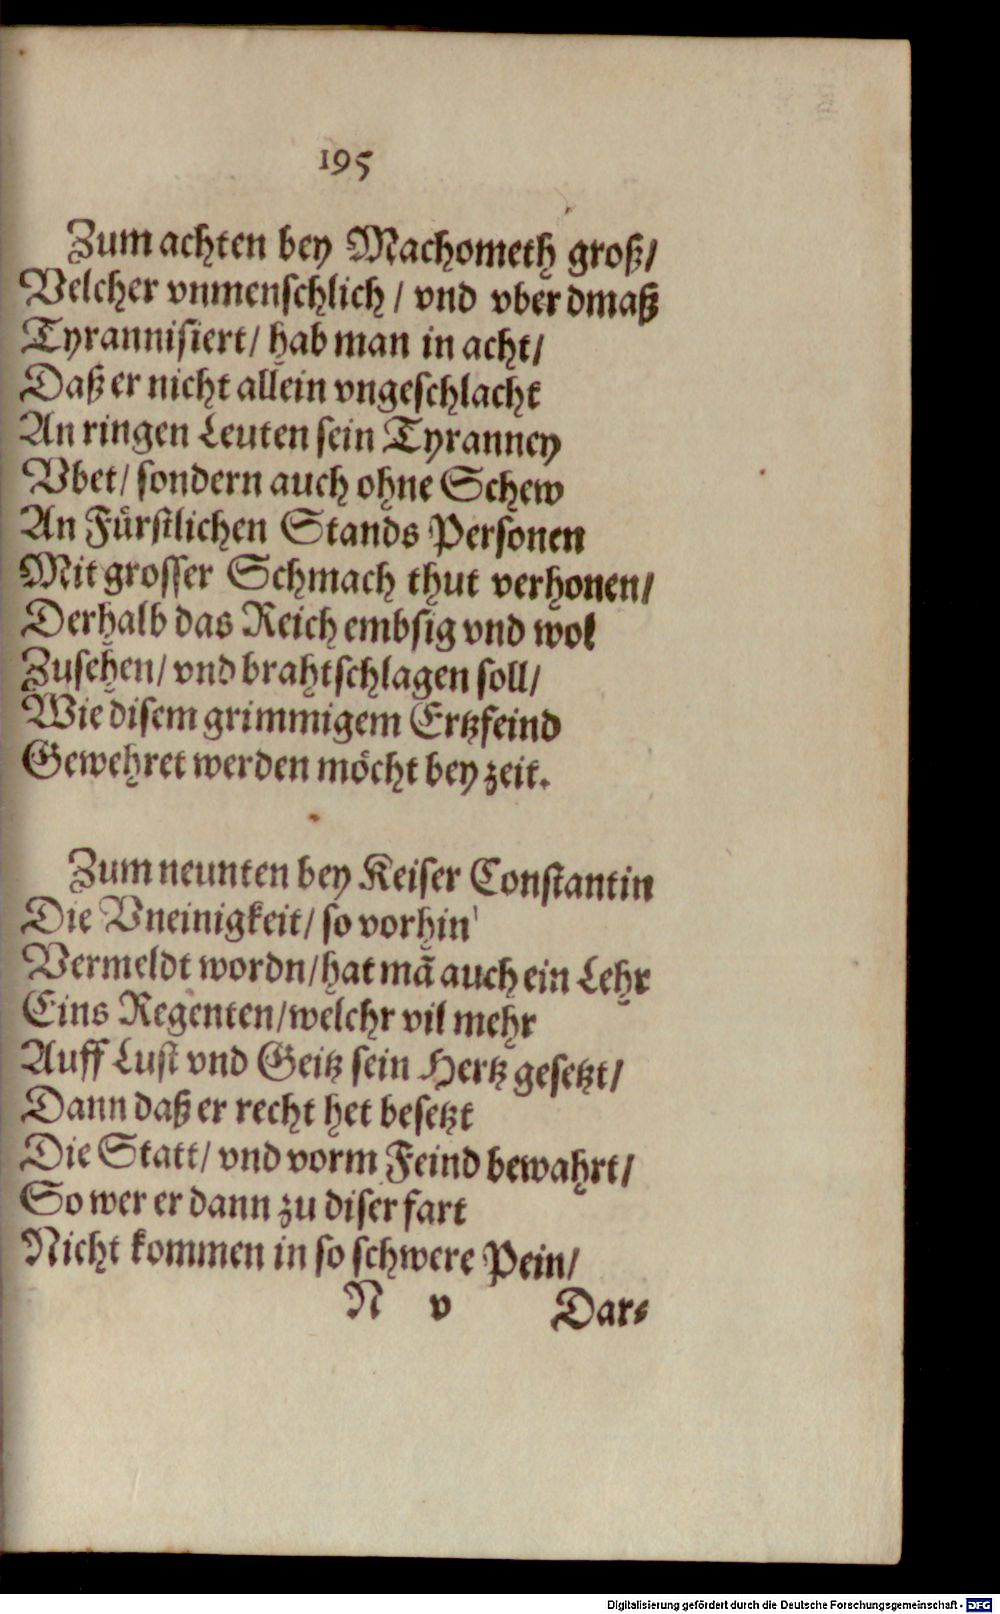 195
Zum achten bey Machometh groß/
Velcher vnmenschlich / vnd vber dmaß
Tyrannisiert/ hab man in acht/
Daß er nicht allein vngeschlacht
An ringen Leuten sein Tyranney
Vbet/ sondern auch ohne Schew
An Fürstlichen Stands Personen
Mit grosser Schmach thut verhonen/
Derhalb das Reich embsig vnd wol
Zusehen/ vnd brahtschlagen soll/
Wie disem grimmigem Ertzfeind
Gewehret werden möcht bey zeit.
Zum neunten bey Keiser Constantin
Die Vneinigkeit/ so vorhin
Vermeldt wordn/hat mã auch ein Lehr
Eins Regenten/welchr vil mehr
Auff Lust vnd Geitz sein Hertz gesetzt/
Dann daß er recht het besetzt
Die Statt/ vnd vorm Feind bewahrt/
So wer er dann zu diser fart
Nicht kommen in so schwere Pein/
N v Dar⸗
Digitalisierung gefördert durch die Deutsche Forschungsgemeinschaft - DFG